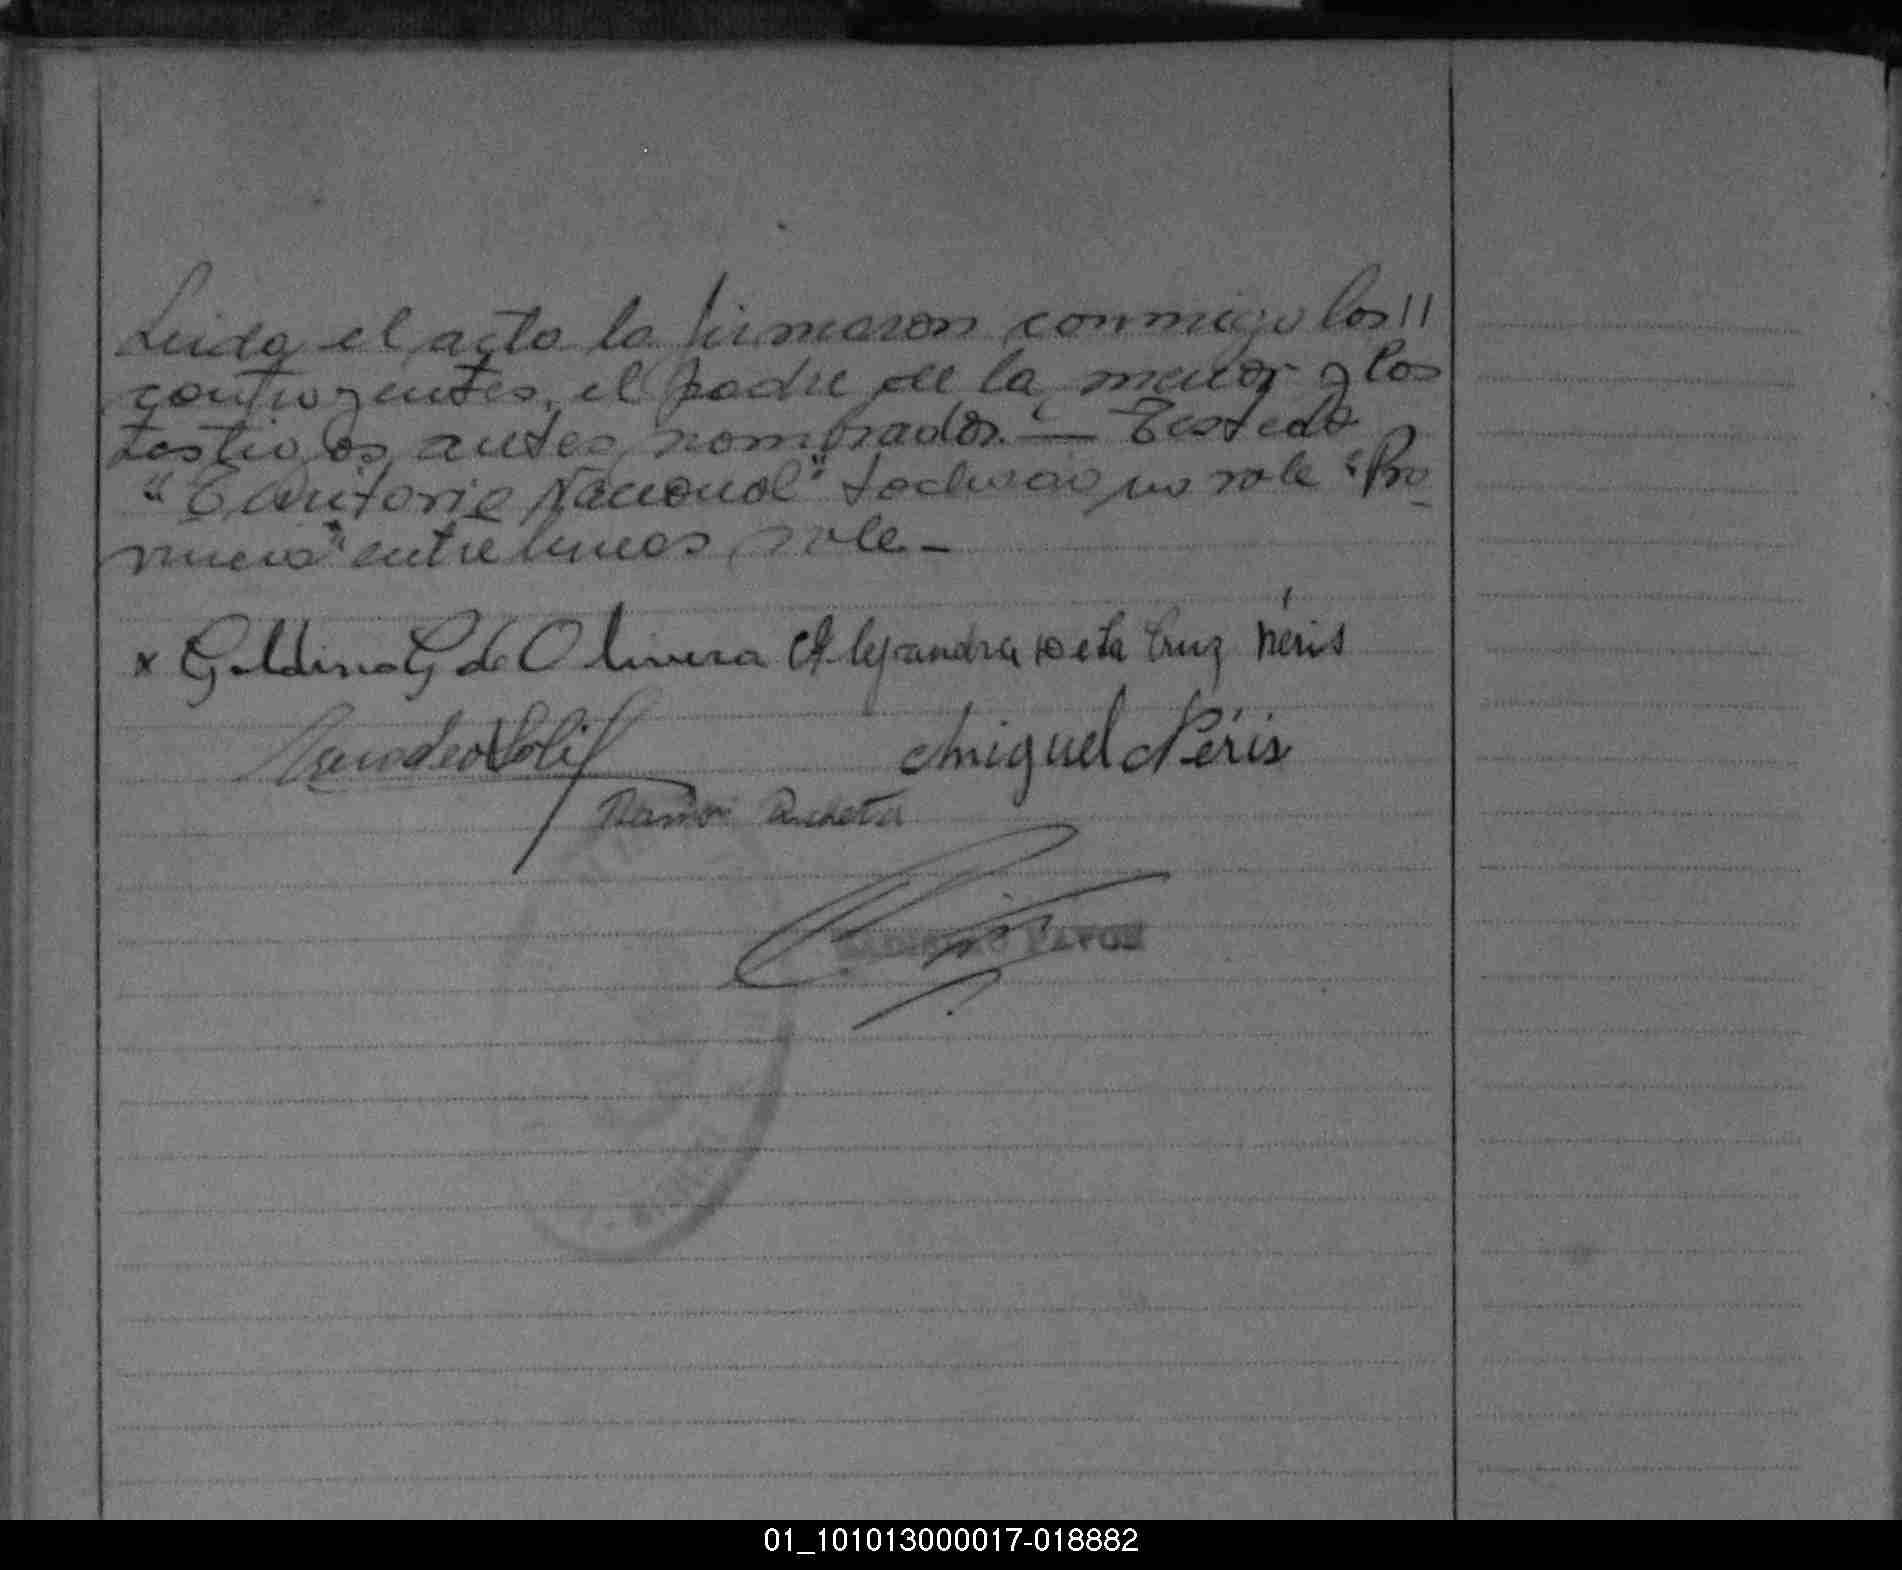 Leida el acta la firmaron conmigo los
contrayentes, el padre de la menor y los
testigos antes nombrados.— Testado
"Territorio Nacional" tachado no vale "Pro
vincia" entre lineas vale.—
x Galdino G de Olivera Alejandra De la Cruz Neris
Amadeo Solis
Miguel Néris
Ramón
01_101013000017-018882